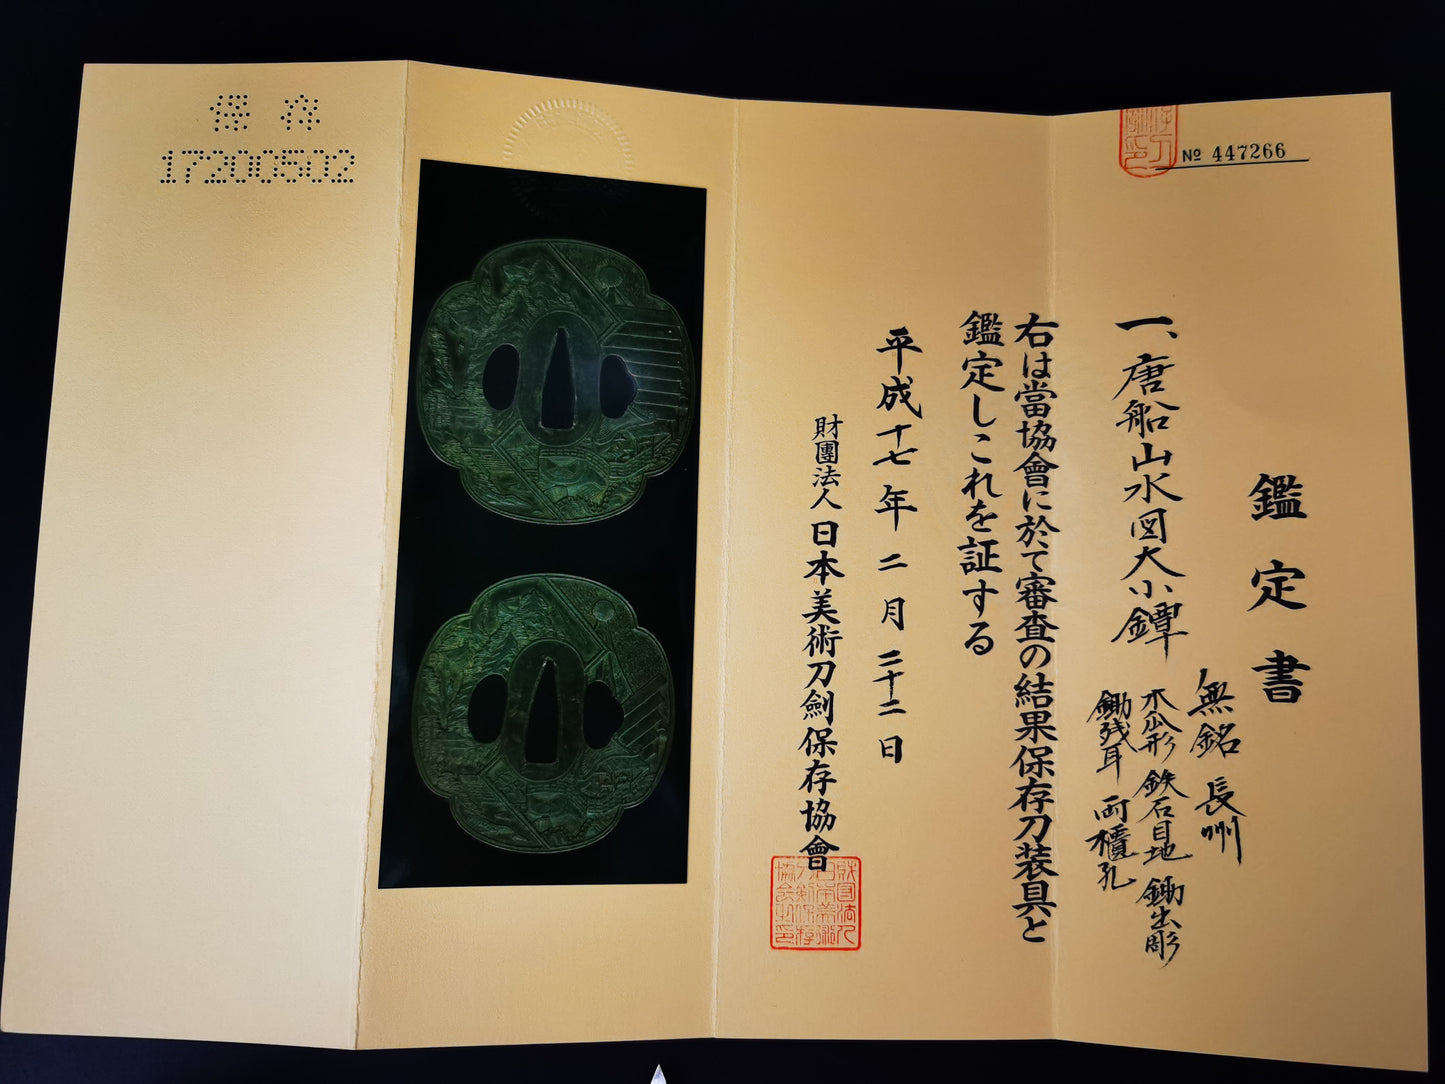 № 447266
鑑定書
一、唐船山水図大小鐔
無銘 長州
木瓜形 鉄石目地 鋤出彫
鋤残耳 両櫃孔
右は當協會に於て審査の結果保存刀装具と
鑑定しこれを証する
平成十七年二月二十二日
財團法人日本美術刀劍保存協會
保存
17200502